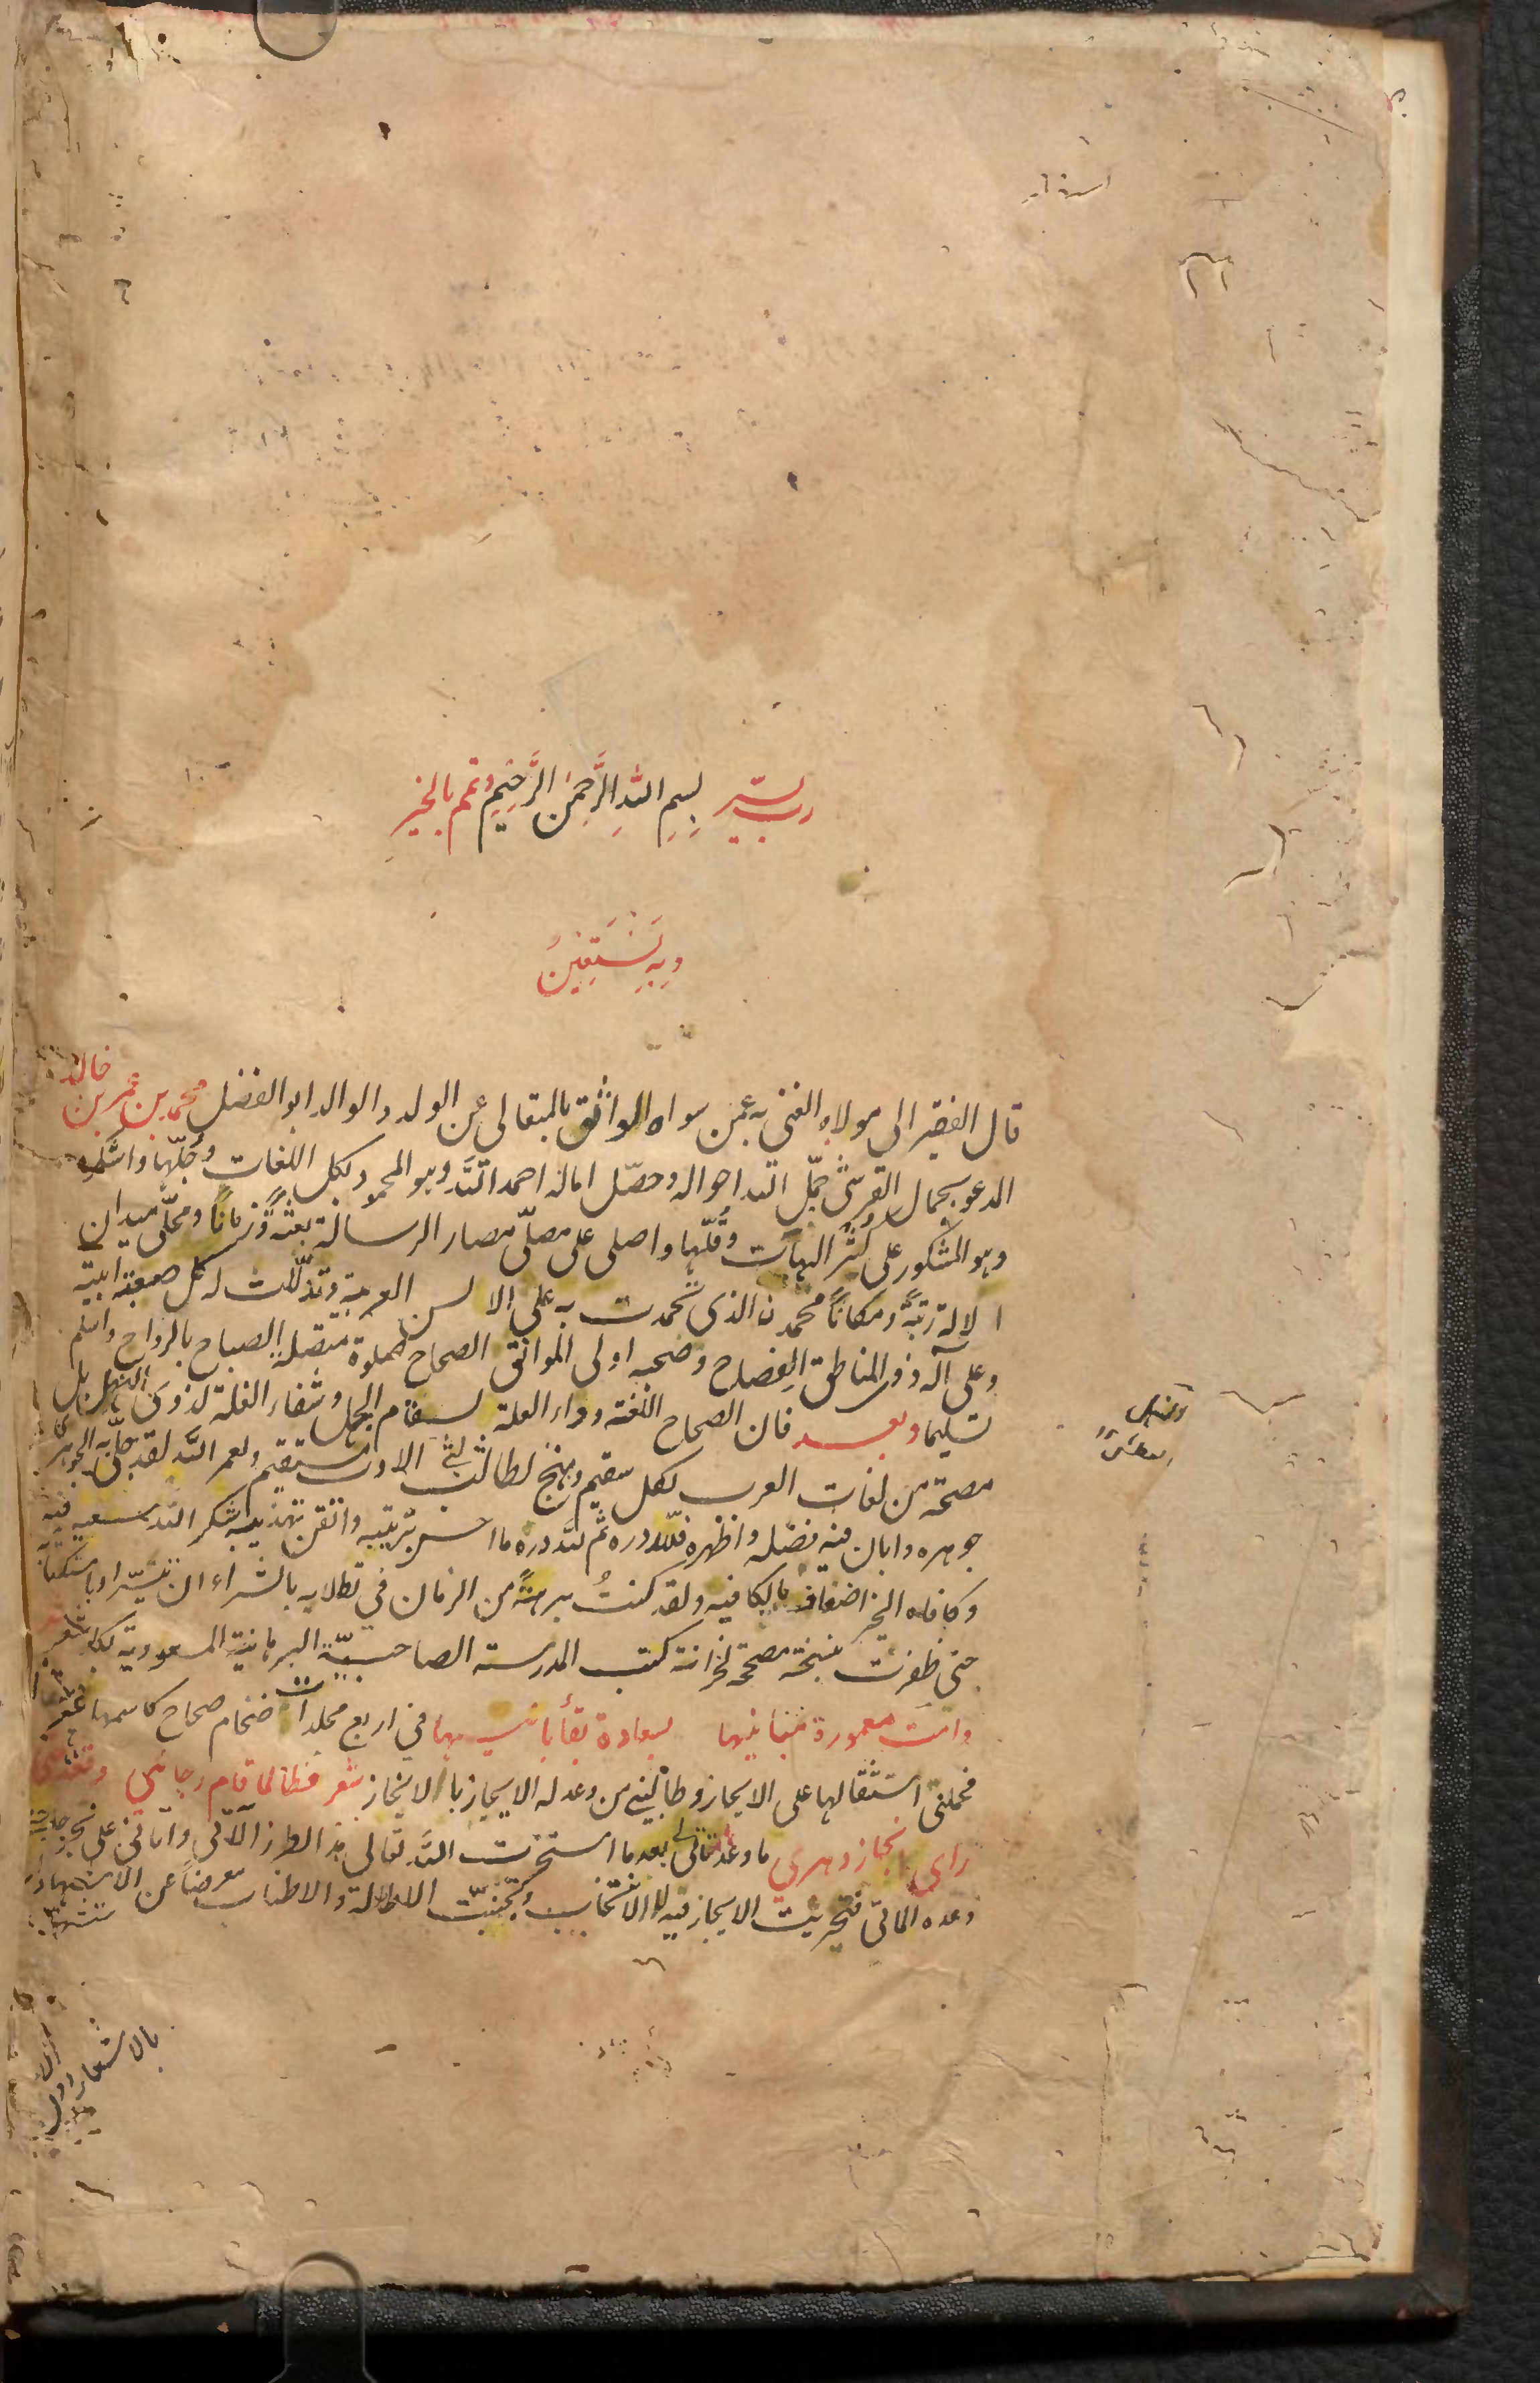 رب يسّر بِسْمِ اللهِ الرَّحْمنِ الرَّحِيمِ وتمم بالخير
وَبِهِ نَسْتَعِينُ
قال الفقير الى مولاه الغنى به عمن سواه الواثق بالمتعالى عن الولد والوالد ابو الفضل محمد بن عمر بن خالد
المدعو بجمال القرشى جمّل الله احواله وحصّل اماله احمد الله وهو المحمود بكل اللغات وجلّها واشكره
وهو المشكور على كثر الهبات وقلّها واصلى على مصلّى مضمار الرسالة بعثةً وزمانًا ومجلّى ميدان
الالة رتبةً ومكانًا محمدن الذى تحمدت به على الالسن العربية وتذلّلت له كل صعبة ابية
وعلى آله ذوى المناطق الفصاح وصحبه اولى المواثق الصحاح صلوة متصلة الصباح بالرواح واسلم
تسليما وبعد فان الصحاح اللغة دواء العلة لسقام الجهل وشفاء الغلة لذوى النهل بل
مصحة من لغات العرب لكل سقيم ومنهج لطالب الادب مستقيم ولعمر الله لقد جلى به الجوهرى
جوهره وابان فيه فضله واظهره فلله دره ثم لله دره ما احسن ترتيبه واتقن تهذيبه اشكر الله سعيه فيه
وكافاه الخير اضعاف ما يكافيه ولقد كنتُ برهةً من الزمان فى تطلابه بالشراء ان تيسّر او باستكتابه
حتى ظفرت بنسخة مصححة لخزانة كتب المدرسة الصاحبيّة البرهانية المسعودية بكاشغر
دامت معمورة مبانيها بسعادة بقأ بانيها فى اربع مجلدات ضخام صحاح كاسمها
فحملنى استثقالها على الايجاز وطالبنى من وعد له الايجاز بالانجاز شعر فطالما قام رجائى
راى انجاز دهرى ما وعد بعد ما استخرت الله تعالى هذا الطراز الآتى وآتانى على
وعده الماتى فتحريت الايجاز فيه للانتخاب وتجنبت الاطالة والاطناب معرضًا عن الاستشهاد
بالاشعار